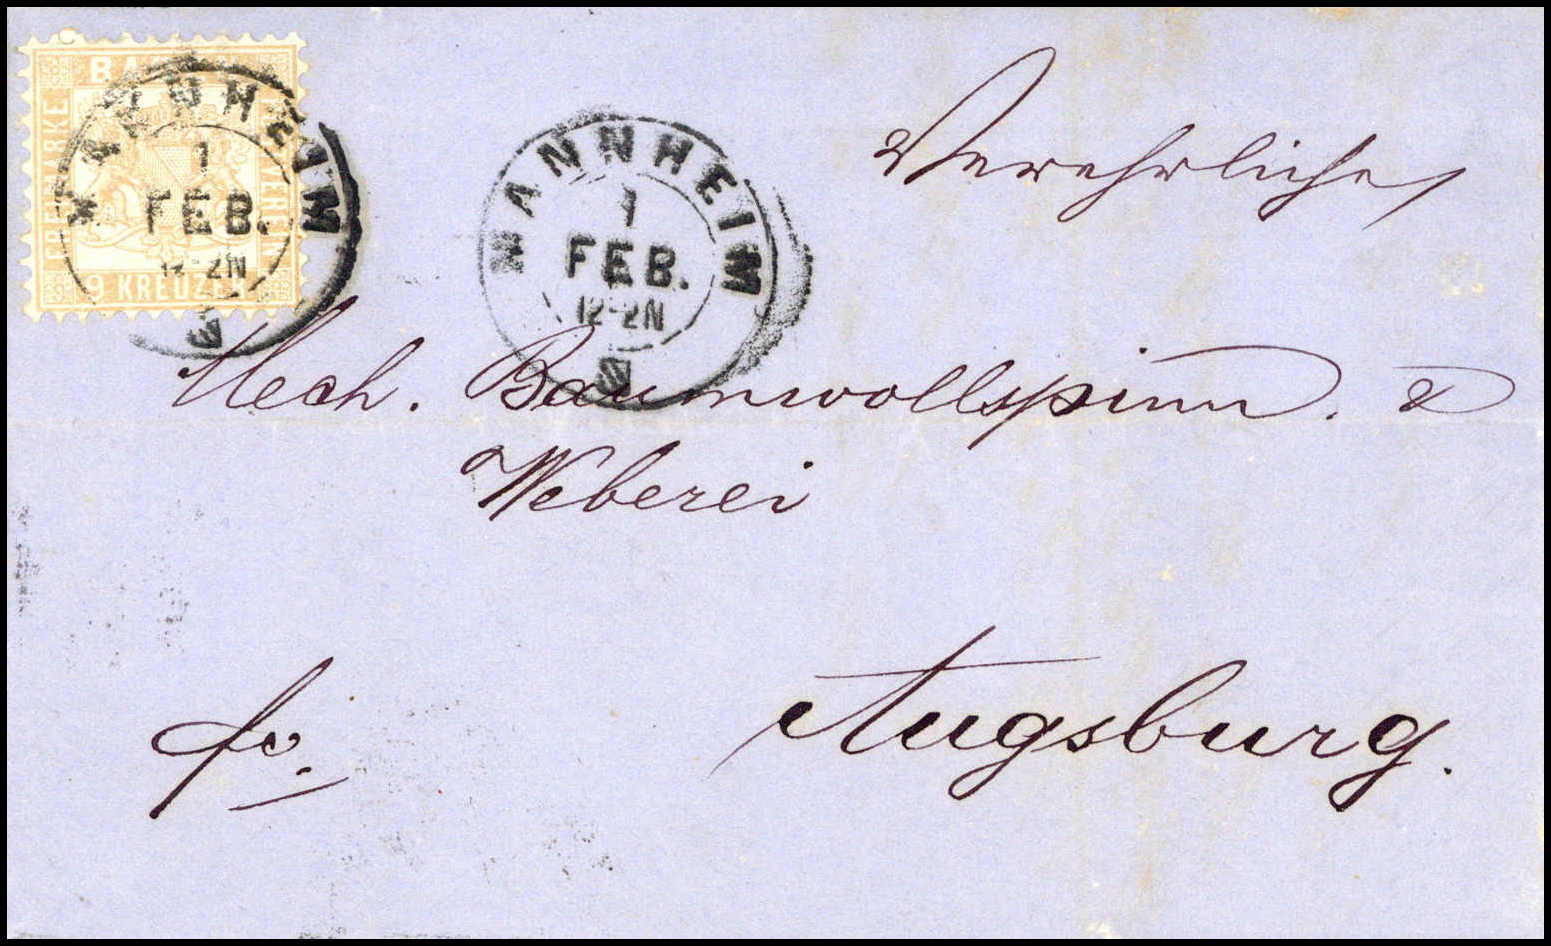 BADEN
FREIMARKE
POSTVEREIN
9 KREUZER
MANNHEIM
1
FEB.
12-2N
MANNHEIM
1
FEB.
12-2N
Verehrliche
Mech. Baumwollspinn. &
Weberei
fo.
Augsburg.